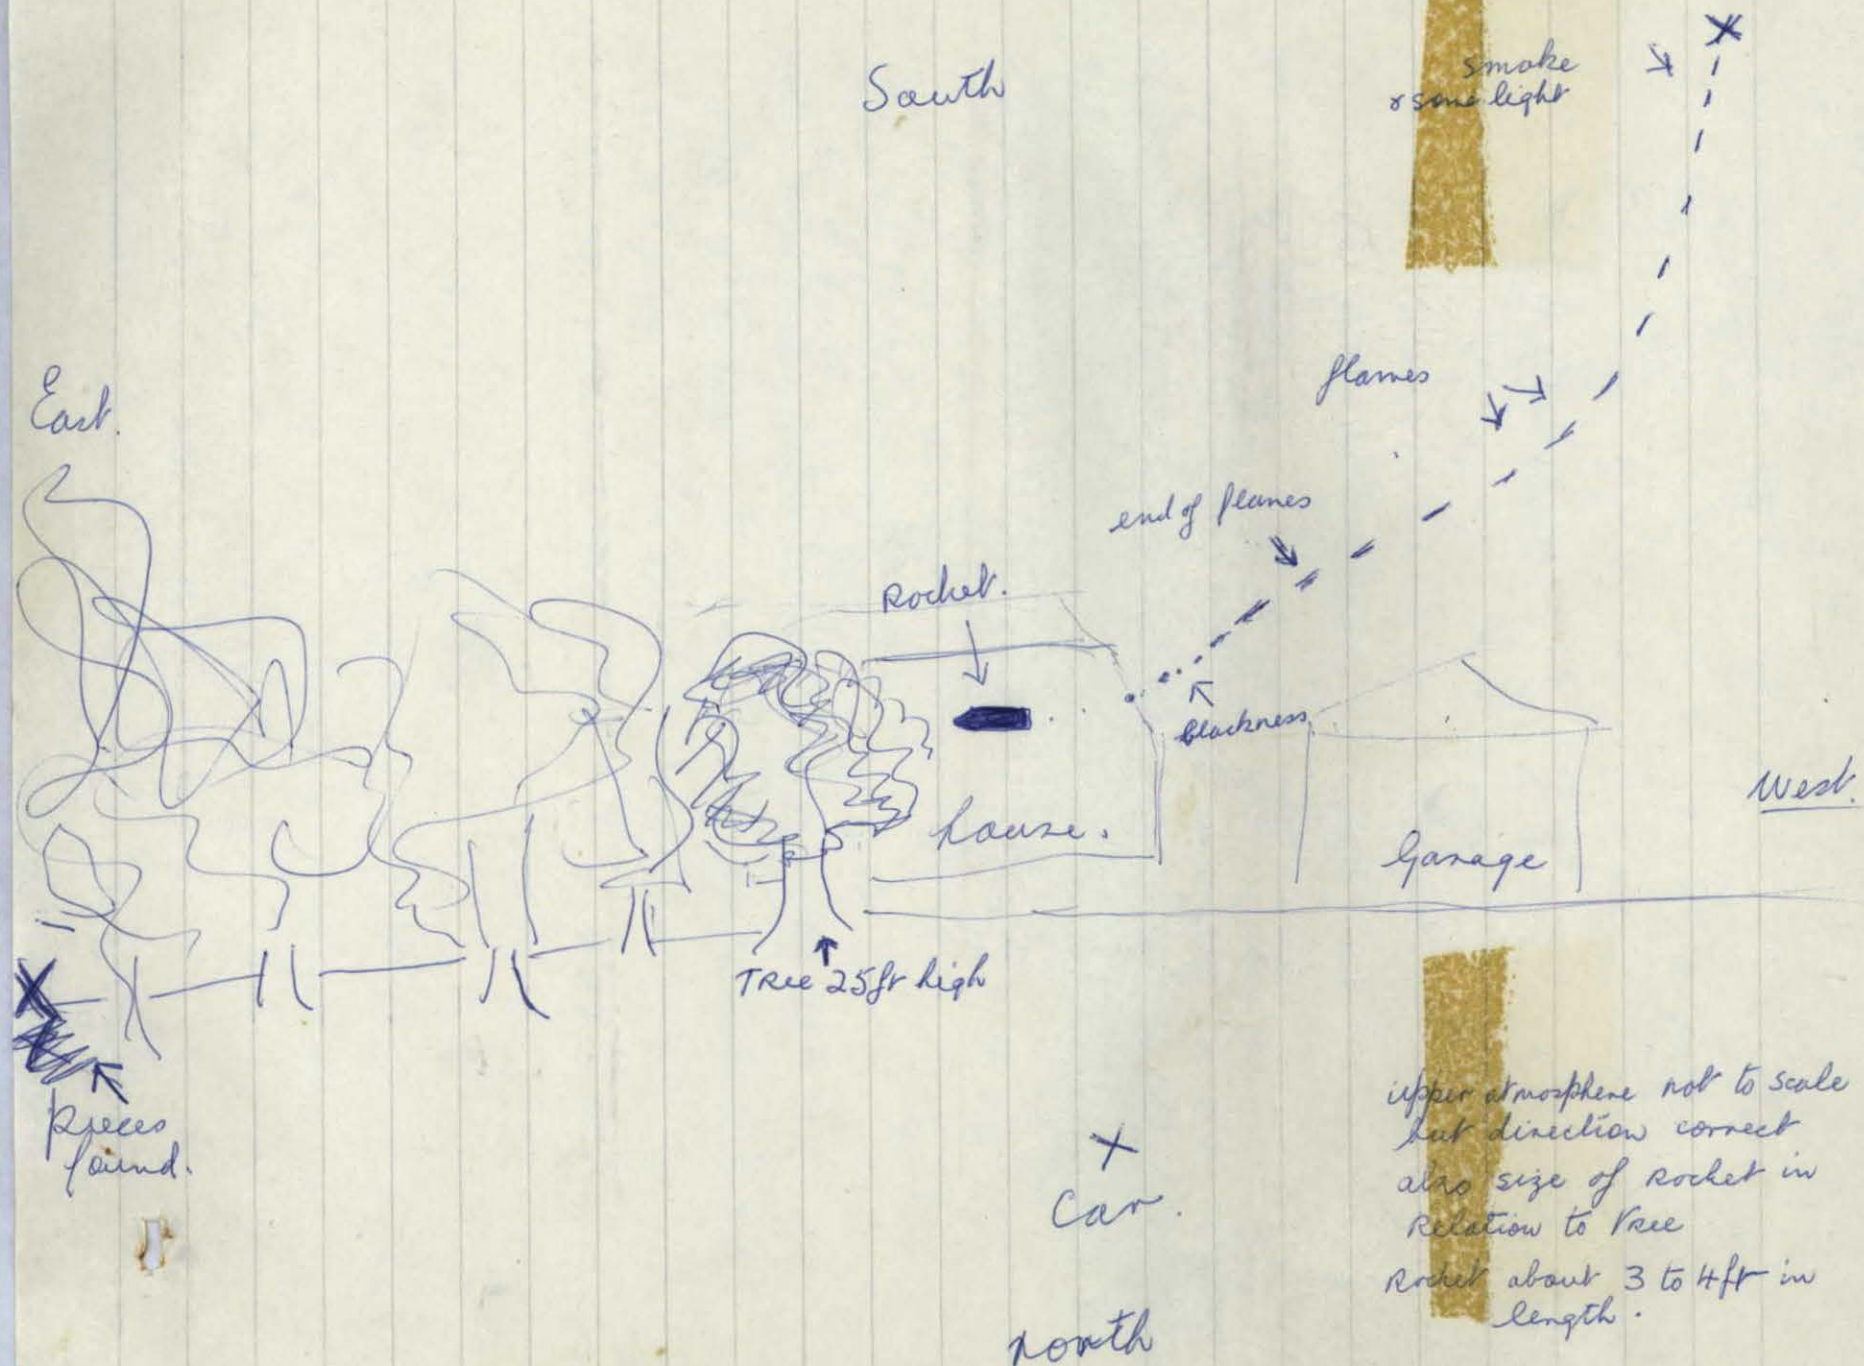 South
smoke
& some light
East.
flames
end of flames
Rocket.
blackness
West.
house.
Garage
Tree 25ft high
pieces
found.
Car.
upper atmosphere not to scale
but direction correct
also size of Rocket in
Relation to Tree
Rocket about 3 to 4ft in
length.
north